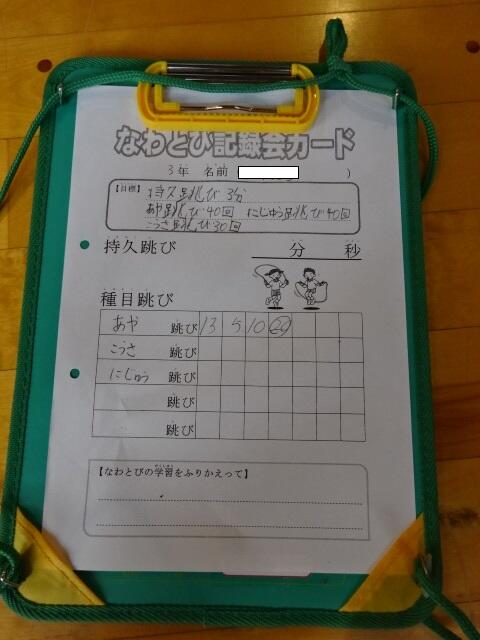 なわとび記録会カード
3年 名前 )
【目標】 持久跳び 3分
あや跳び40回 にじゅう跳び40回
こうさ跳び30回
持久跳び 分 秒
種目跳び
あや 跳び 13 5 10 29
こうさ 跳び
にじゅう 跳び
跳び
跳び
【なわとびの学習をふりかえって】